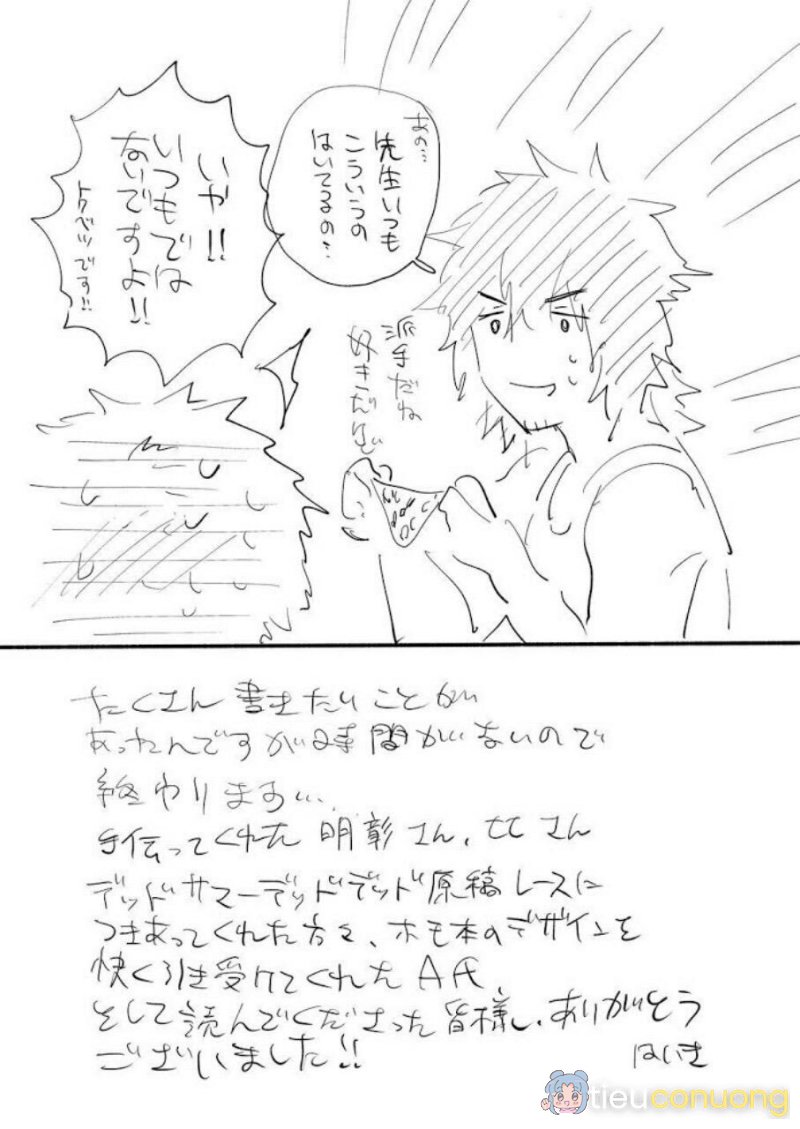 あの…
先生いつも
こういうの
はいてるの…
いや!!
いつもでは
ないですよ!!
トクベツです!!
派手だね
好きだけど
たくさん書きたいことが
あったんですが時間がないので
終わります…
手伝ってくれた明彰さん、ヒヒさん
デッドサマーデッドデッド原稿レースに
つきあってくれた方々、ホモ本のデザインを
快く引き受けてくれたA氏、
そして読んでくださった皆様し、ありがとう
ございました!!
はいき
tieuconuong